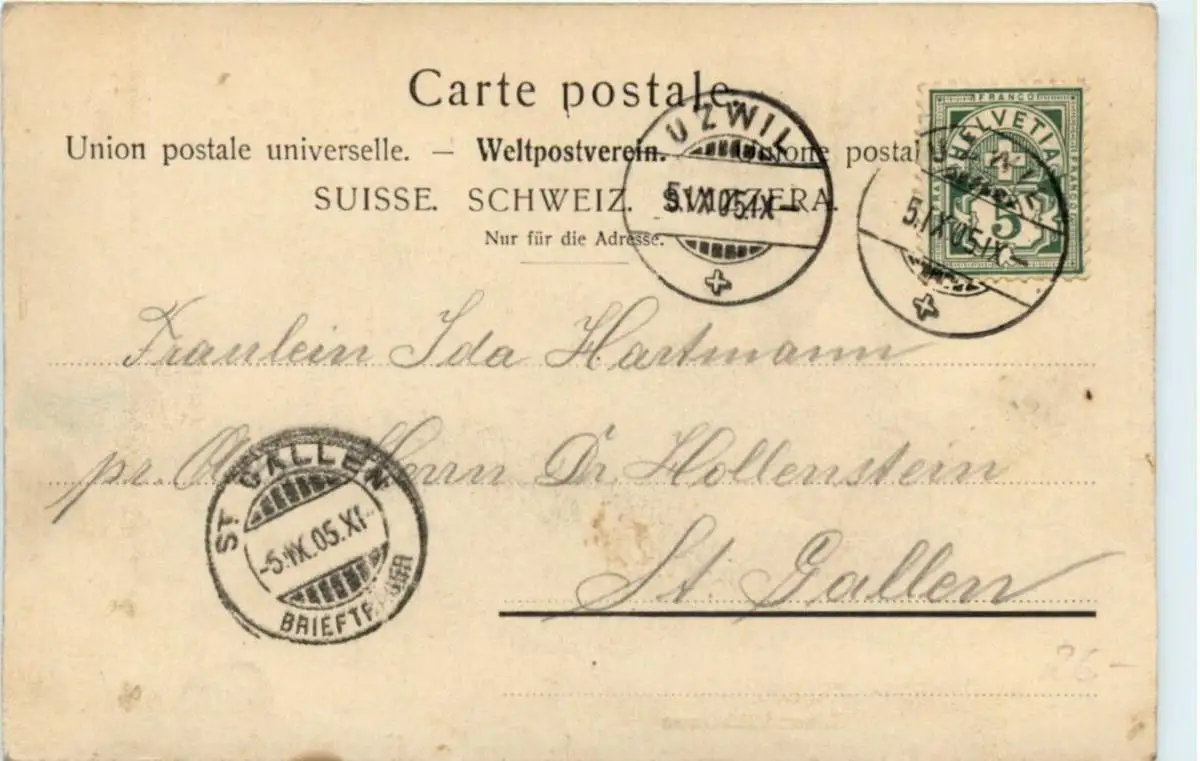 Carte postale.
Union postale universelle. — Weltpostverein. — Unione postal
SUISSE. SCHWEIZ. SVIZZERA.
Nur für die Adresse.
UZWIL
5.IX.05.IX–
FRANCO
HELVETIA
5
UZWIL
5.IX.05.IX.–
Fräulein Ida Hartmann
pr. Herrn Dr. Hollenstein
St. Gallen
ST. GALLEN
-5.IX.05.XI-
26-